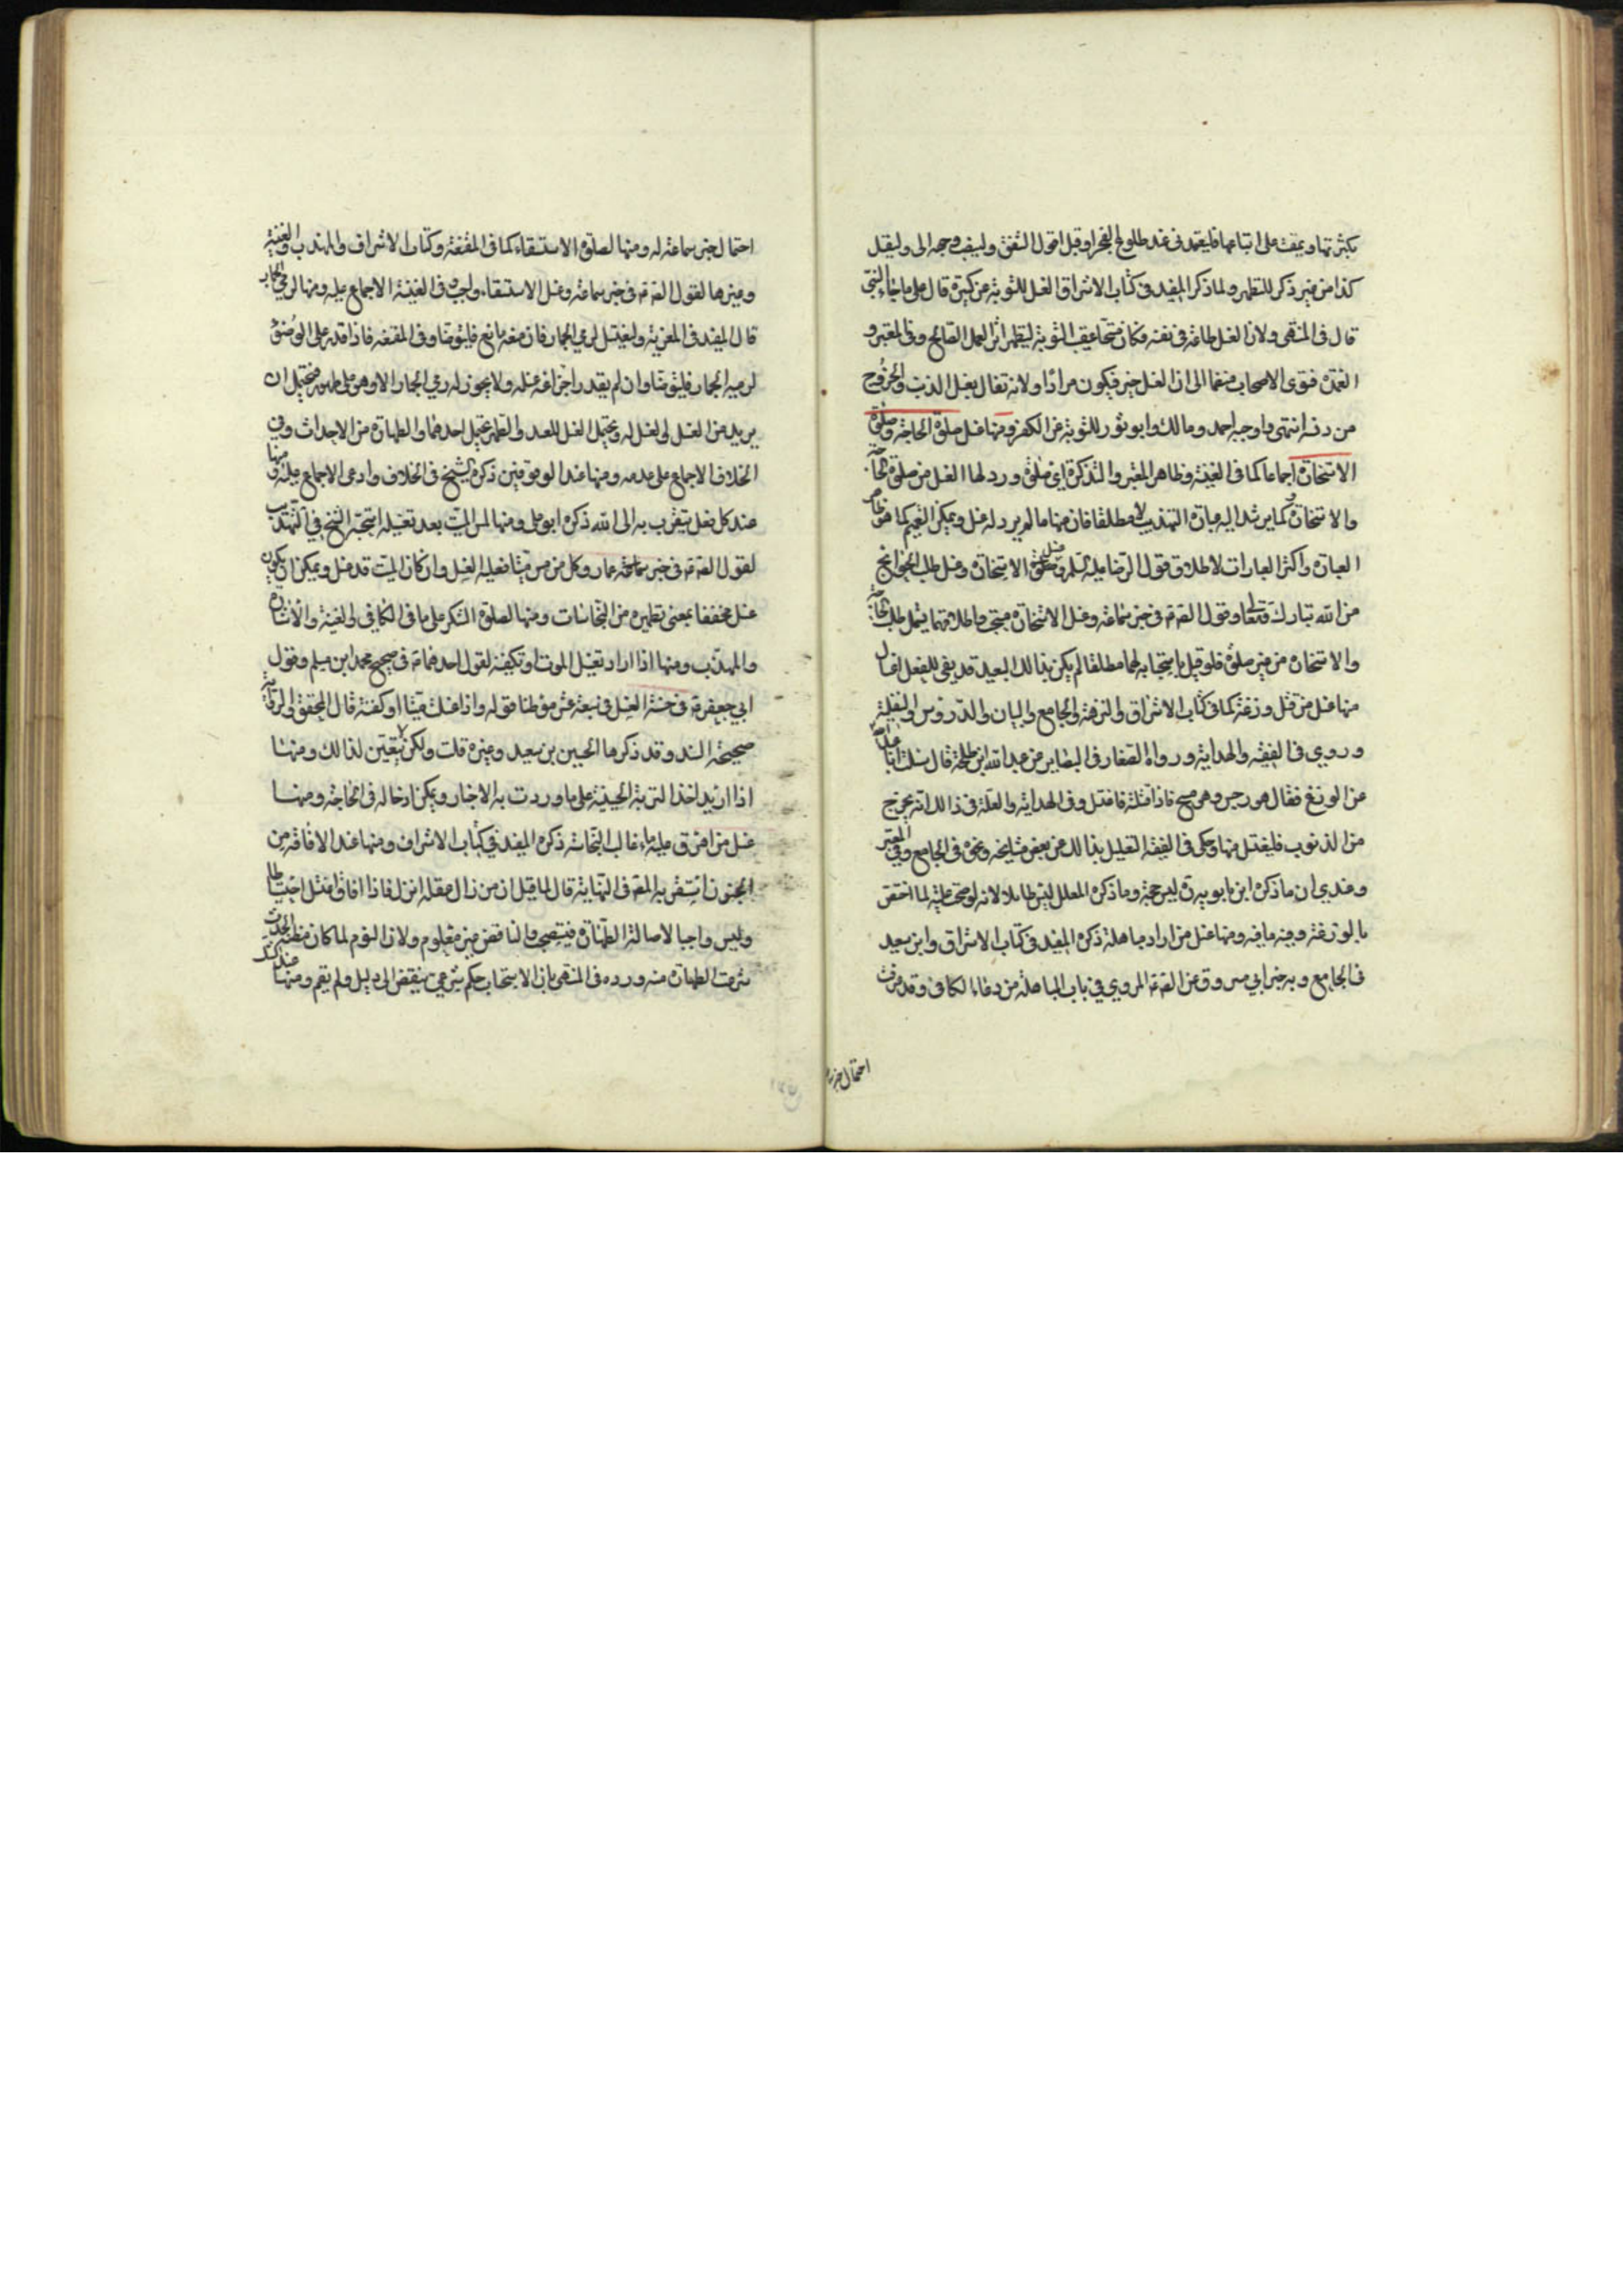 بكثرتها ويمقت على اتباعها فليعمد في عند طلوع الفجر او قبل افول الشفق وليقف وجهه الى وليقل
كذا من غير ذكر للتطهر ولما ذكر المفيد في كتاب الاشراق الغسل للتوبة من كبيرة قال على ما جاء النبي
قال في المنتهى ولان الغسل طاعة في نفسه فكان مستحبا عقيب التوبة ليظهر اثر العمل الصالح وفي المعتبر و
العمدة فتوى الاصحاب منضما الى ان الغسل خير فيكون مرادا ولانه تفال بغسل الذنب والخروج
من دنسه انتهى واوجبه احمد ومالك وابو ثور للتوبة عن الكفر ومنها غسل صلوة الحاجة وصلوة
الاستخارة اجماعا كما في الغنية وظاهر المعتبر والتذكرة اي صلوة ورد لها الغسل من صلوة الحاجة
والاستخارة كما يرشد اليه عبارة التهذيب لا مطلقا فان منها ما لم يرد له غسل ويمكن التعميم كما هو ظاهر
العبارة واكثر العبارات لاطلاق قول الرضا عليه السلم وغسل الاستخارة وغسل طلب الحوائج
من الله تبارك وتعالى وقول الصّ ع في خبر سماعة وغسل الاستخارة مستحب واطلاقهما يشمل طلب الحاجة
والاستخارة من غير صلوة فلو قيل باستحبابه لهما مطلقا لم يكن بذالك البعيد قد بقى للفعل اغسال
منها غسل من قتل وزغة كما في كتاب الاشراق والنزهة والجامع والبيان والدروس والنفلية
وروي في الفقيه والهداية ورواه الصفار في البصاير عن عبد الله ابن طلحة قال سئلت ابا عبد الله
عن الوزغ فقال هو رجس وهو مسخ فاذا قتلته فاغتسل وفي الهداية والعلة في ذالك انه يخرج
من الذنوب فليغتسل منها وحكى في الفقيه التعليل بذالك عن بعض مشايخه ونحوه في الجامع وفي المعتبر
وعندي ان ما ذكره ابن بابويه ره ليس حجة وما ذكره المعلل ليس طائلا لانه لو صحت علته لما اختص
بالوزغة وفيه ما فيه ومنها غسل من اراد مباهلة ذكره المفيد في كتاب الاشراق وابن سعيد
في الجامع وبه خبر ابي مسروق عن الصّ ع المروي في باب المباهلة من دعاء الكافي وقد عرفت
احتمال خبر
احتمال خبر سماعة له ومنها لصلوة الاستسقاء كما في المقنعة وكتاب الاشراف والمهذب والغنية
وغيرها لقول الصّ ع في خبر سماعة وغسل الاستسقاء واجب وفي الغنية الاجماع عليه ومنها لرمي الجمار
قال المفيد في العزية وليغتسل لرمي الجمار فان منعه مانع فليتوضا وفي المقنعة فاذا قدر على الوضوء
لرميه الجمار فليتوضا وان لم يقدر اجزا عنه غسله ولا يجوز له رمي الجمار الا وهو على طهر فيحتمل ان
يريد من الغسل الغسل له ويحتمل الغسل للعيد والطهر يحتمل احدهما والطهارة من الاحداث وفي
الخلاف الاجماع على عدمه ومنها عند الوقوفين ذكره الشيخ في الخلاف وادعى الاجماع عليه ومنها
عند كل فعل يتقرب به الى الله ذكره ابو علي ومنها لمس الميت بعد تغسيله استحبه الشيخ في التهذيب
لقول الصّ ع في خبر عمار وكل من مس ميتا فعليه الغسل وان كان الميت قد غسل ويمكن ان يكون
غسل مخففا بمعنى تطهيره من النجاسات ومنها لصلوة الشكر على ما في الكافي والغنية والاشارة
والمهذب ومنها اذا اراد تغسيل الموت او تكفينه لقول احدهما ع في صحيح محمد ابن مسلم وقول
ابي جعفر ع في حسنه الغسل في سبعة عشر موطنا قوله واذا غسلت ميتا او كفنته قال المحقق الرواية
صحيحة السند وقد ذكرها الحسين بن سعيد وغيره قلت ولكن لا يتعين لذالك ومنها
اذا اريد اخذ التربة الحسينية على ما وردت به الاخبار ويمكن ادخاله في الحاجة ومنها
غسل من اهرق عليه ماء غالب النجاسة ذكره المفيد في كتاب الاشراف ومنها عند الافاقة من
الجنون استقربه المصّ في النهاية قال لما قيل ان من زال عقله انزل فاذا افاق اغتسل احتياطا
وليس واجبا لاصالة الطهارة فيستصحب والناقض غير معلوم ولان النوم لما كان مظنة الحدث
شرعت الطهارة منه ورده في المنتهى بان الاستحباب حكم شرعي يفتقر الى دليل ولم يقم ومنها عند الشك